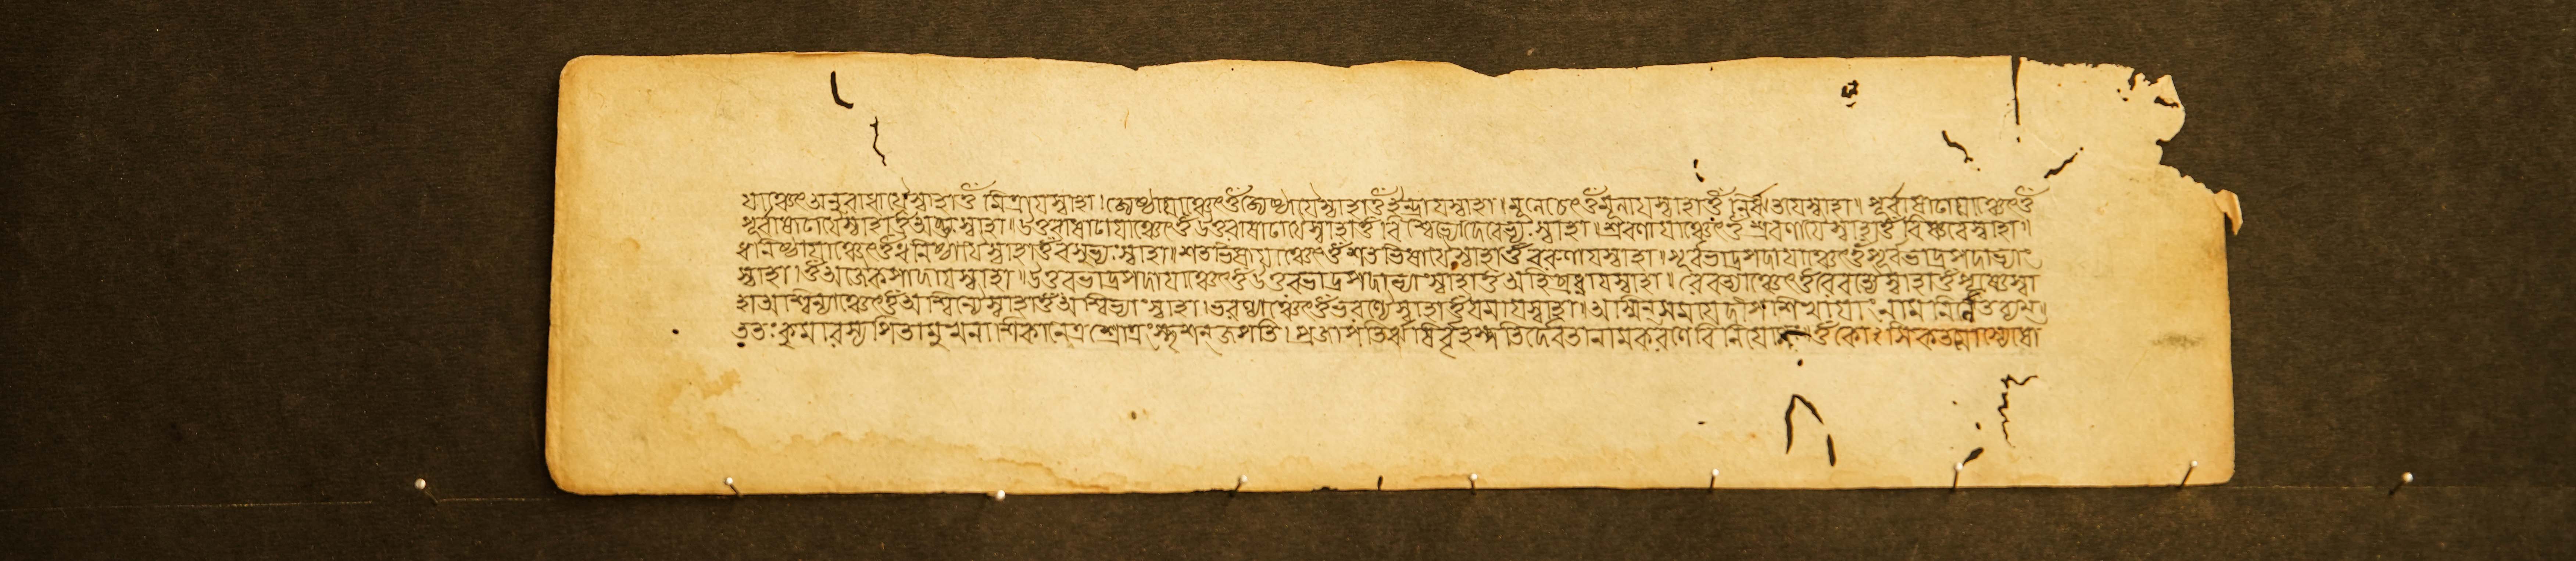 यांचेत् अनुराधायै स्वाहा ॐ मित्राय स्वाहा। ज्येष्ठायाञ्चेत् ॐ ज्येष्ठायै स्वाहा ॐ इन्द्राय स्वाहा। मूलेचेत् ॐ मूलाय स्वाहा ॐ निरृतये स्वाहा। पूर्वाषाढायाञ्चेत् ॐ
পূর্বাষাঢায়ৈ স্বাহা ওঁ অদ্ভ্যঃ স্বাহা। উত্তরাষাঢায়াঞ্চেৎ ওঁ উত্তরাষাঢায়ৈ স্বাহা ওঁ বিশ্বেভ্যো দেবেভ্যঃ স্বাহা। শ্রবণায়াঞ্চেৎ ওঁ শ্রবণায়ৈ স্বাহা ওঁ বিষ্ণবে স্বাহা।
ধনিষ্ঠায়াঞ্চেৎ ওঁ ধনিষ্ঠায়ৈ স্বাহা ওঁ বসুভ্যঃ স্বাহা। শতভিষায়াঞ্চেৎ ওঁ শতভিষায়ৈ স্বাহা ওঁ বরুণায় স্বাহা। পূর্বভাদ্রপদায়াঞ্চেৎ ওঁ পূর্বভাদ্রপদাভ্যাং
স্বাহা। ওঁ অজৈকপাদায় স্বাহা। উত্তরভাদ্রপদায়াঞ্চেৎ ওঁ উত্তরভাদ্রপদাভ্যাং স্বাহা ওঁ অহির্বুধ্ন্যায় স্বাহা। রেবত্যাঞ্চেৎ ওঁ রেবত্যৈ স্বাহা ওঁ পূষ্ণে স্বা
হা অশ্বিন্যাঞ্চেৎ ওঁ অশ্বিন্যৈ স্বাহা ওঁ অশ্বিভ্যাং স্বাহা। ভরণ্যাঞ্চেৎ ওঁ ভরণ্যৈ স্বাহা ওঁ যমায় স্বাহা। অস্মিন্
ততঃ কুমারস্য পিতা মুখনাশিকানেত্রশ্রোত্রং স্পৃশন্ জপতি। প্রজাপতিরৃষির্বৃহস্পতির্দেবতা নামকরণে বিনিয়োগঃ। ওঁ কোঽসি কতমোঽস্যেষো